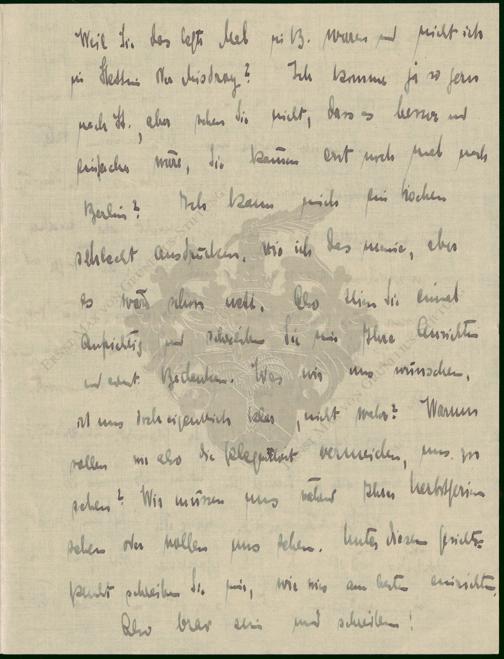 Weil Sie das letzte Mal in B. waren und nicht ich
in Stettin oder Misdroy? Ich komme ja so gern
nach St., aber sehen Sie nicht, dass es besser und
einfacher wäre, Sie kämen erst noch mal nach
Berlin? Ich kann mich ein bischen
schlecht ausdrücken, wie ich das meine, aber
es wird schon nett. Also seien Sie einmal
aufrichtig und schreiben Sie mir Ihre Ansichten
und event. Bedenken. Was wir uns wünschen,
ist uns doch eigentlich klar, nicht wahr? Warum
sollen wir also die Gelegenheit vermeiden, uns zu
sehen? Wir müssen uns während Ihrer Herbstferien
sehen oder wollen uns sehen. Unter diesem Gesichts-
punkt schreiben Sie mir, wie wir am besten einrichten.
Also brav sein und schreiben!